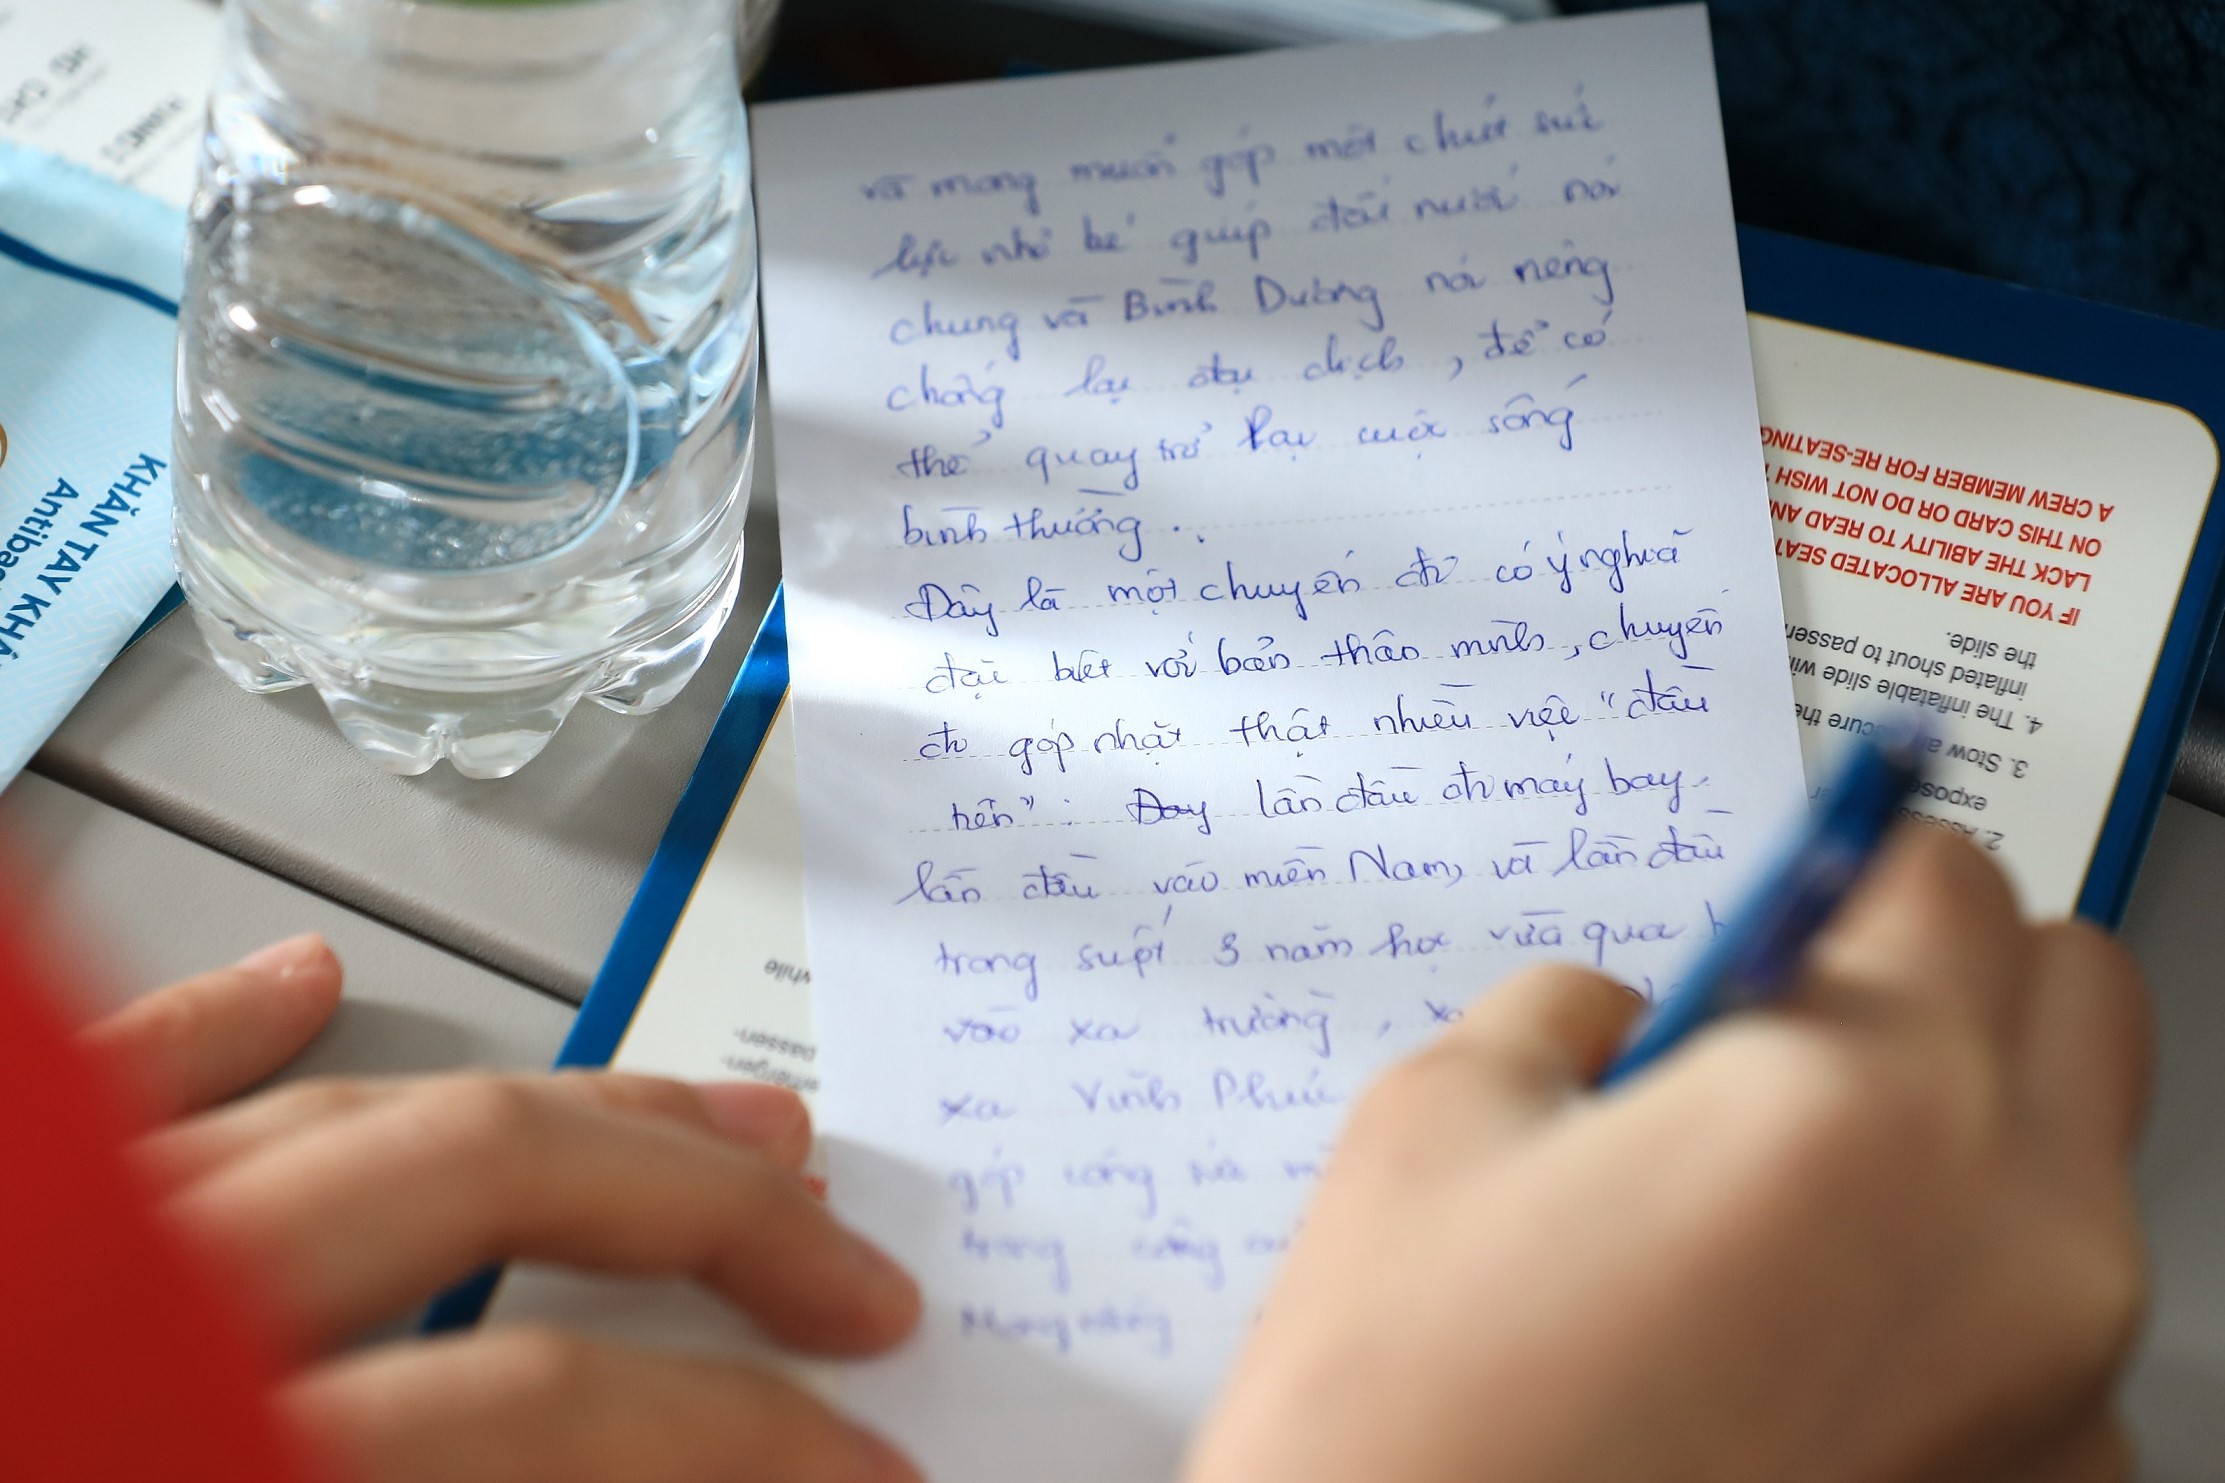 và mong muốn góp một chút sức
lực nhỏ bé giúp đất nước nói
chung và Bình Dương nói riêng
chống lại đại dịch, để có
thể quay trở lại cuộc sống
bình thường...
Đây là một chuyến đi có ý nghĩa
đặc biệt với bản thân mình, chuyến
đi góp nhặt thật nhiều việc "đầu
tiên": Đay lần đầu đi máy bay,
lần đầu vào miền Nam, và lần đầu
trong suốt 3 năm học vừa qua
vào xa trường, xa
xa Vĩnh Phúc
góp công sức
trong công
Mong rằng
KHĂN TAY KHÁ
Antiba
IF YOU ARE ALLOCATED SEAT
LACK THE ABILITY TO READ AN
ON THIS CARD OR DO NOT WISH
A CREW MEMBER FOR RE-SEATING
the slide.
inflated shout to passen
4. The inflatable slide wi
3. Stow a cure the
expose
2. Assess
while
passen-